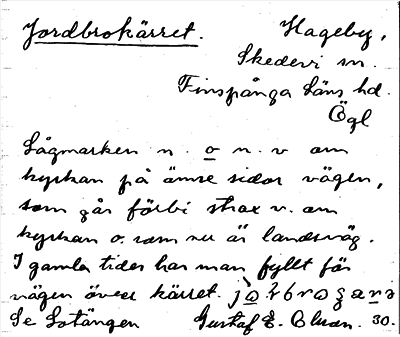 Jordbrokärret.
Hageby,
Skedevi sn.
Finspånga Läns hd.
Ögl
Lågmarken n. o n. v om
kyrkan på ämse sidor vägen,
som går förbi strax v. om
kyrkan o. som nu är landsväg.
I gamla tider har man fyllt för
vägen över kärret.
Se Lotängen Gustaf E. 30.